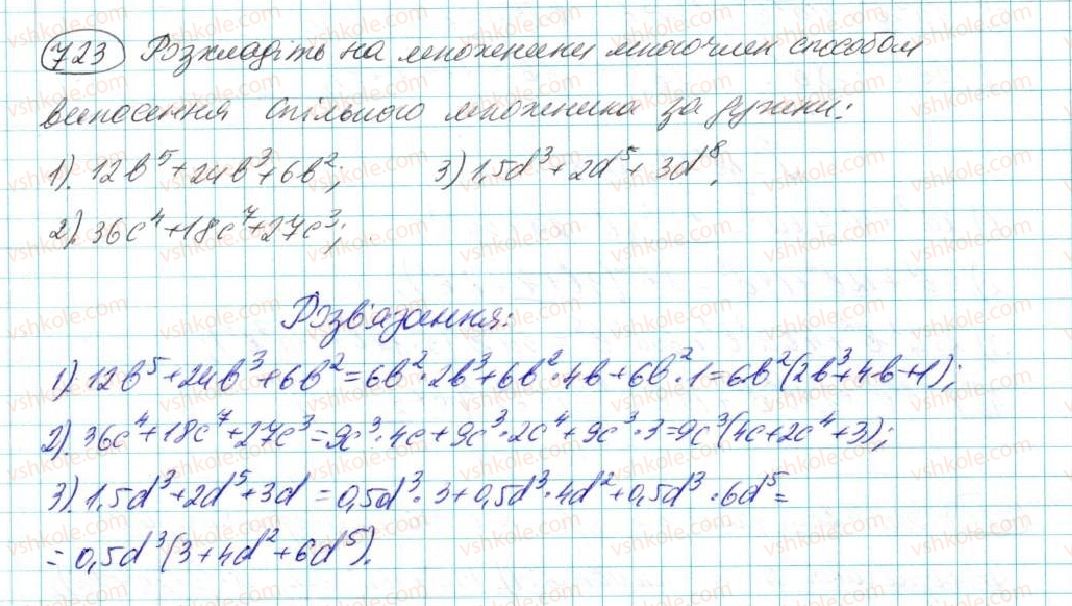 723 Розкладіть на множники многочлен способом
винесення спільного множника за дужки:
1). 12b⁵+24b³+6b²; 3) 1,5d³+2d⁵+3d⁸.
2). 36c⁴+18c⁷+27c³;
Розв'язання:
1) 12b⁵+24b³+6b²=6b²·2b³+6b²·4b+6b²·1=6b²(2b³+4b+1);
2). 36c⁴+18c⁷+27c³=9c³·4c+9c³·2c⁴+9c³·3=9c³(4c+2c⁴+3);
3). 1,5d³+2d⁵+3d=0,5d³·3+0,5d³·4d²+0,5d³·6d⁵=
=0,5d³(3+4d²+6d⁵).